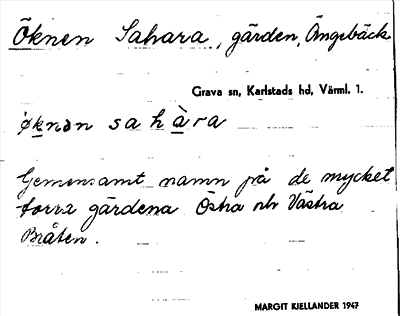 Öknen Sahara, gärden, Ängebäck
Grava sn, Karlstads hd, Värml. 1.
øknən sahàra
Gemensamt namn på de mycket
torra gärdena Östra och Västra
Bråten.
MARGIT KJELLANDER 1947